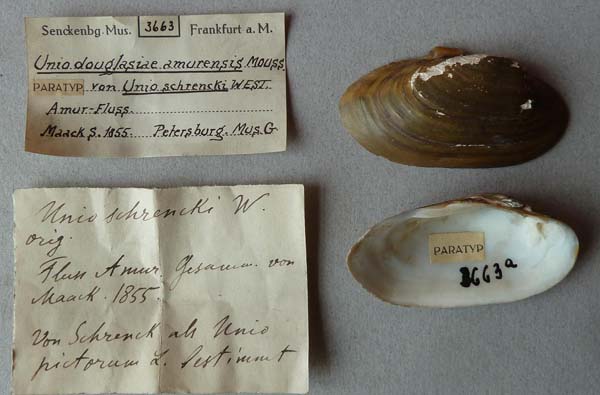 Senckenbg. Mus. 3663 Frankfurt a. M.
Unio douglasiae amurensis Mouss.
PARATYP von Unio schrencki WEST.
Amur-Fluss.
Maack S. 1855. Petersburg. Mus. G
Unio schrencki W.
orig.
Fluss Amur. Gesamm. von
Maack. 1855.
Von Schrenck als Unio
pictorum L. bestimmt
PARATYP
3663a